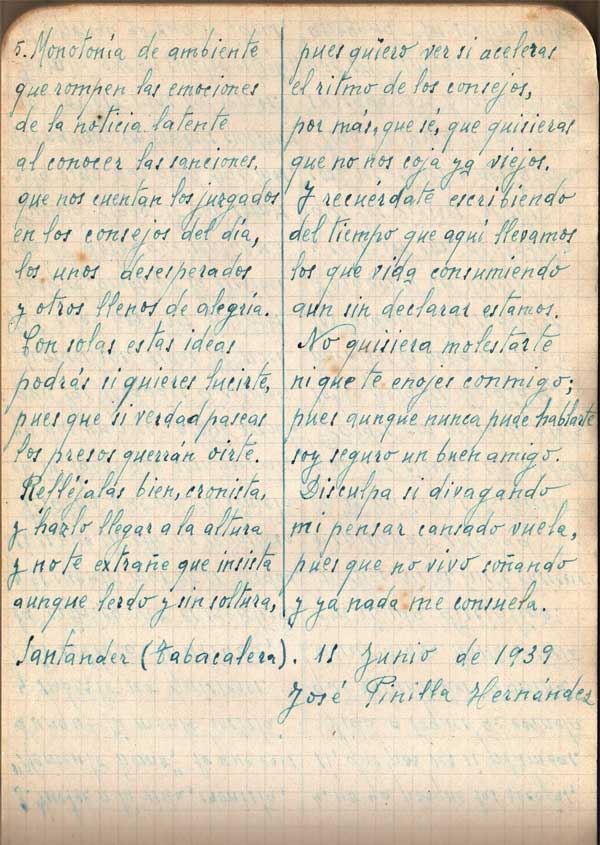 5. Monotonía de ambiente
que rompen las emociones
de la noticia latente
al conocer las sanciones.
que nos cuentan los juzgados
en los consejos del día,
los unos desesperados
y otros llenos de alegría.
Con solas estas ideas
podrás si quieres lucirte,
pues que si verdad paseas
los presos querrán oirte.
Refléjalas bien, cronista,
y hazlo llegar a la altura
y no te extrañe que insista
aunque lerdo y sin soltura,
pues quiero ver si aceleras
el ritmo de los consejos,
por más, que sé, que quisieras
que no nos coja ya viejos.
Y recuérdate escribiendo
del tiempo que aquí llevamos
los que vida consumiendo
aun sin declarar estamos.
No quisiera molestarte
ni que te enojes conmigo;
pues aunque nunca pude hablarte
soy seguro un buen amigo.
Disculpa si divagando
mi pensar cansado vuela,
pues que no vivo soñando
y ya nada me consuela.
Santander (Tabacalera). 11 Junio de 1939
José Pinilla Hernández